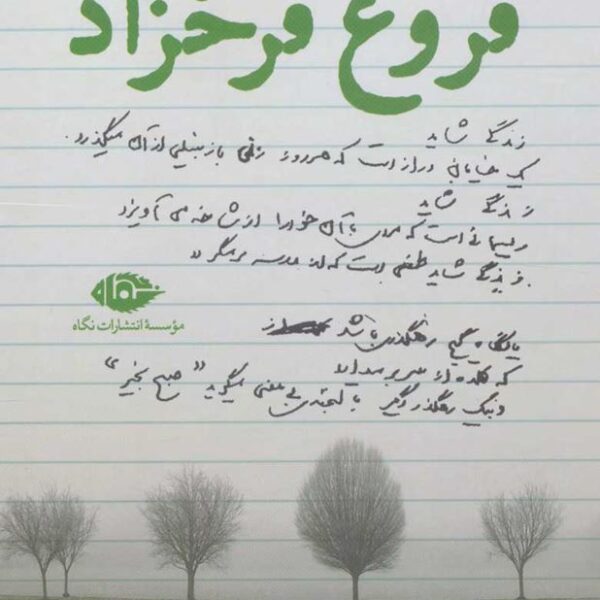 فروغ فرخزاد
زندگی شاید
یک خیابان درازست که هر روز زنی با زنبیلی از آن میگذرد.
زندگی شاید
ریسمانی است که مردی با آن خود را از شاخه می آویزد
زندگی شاید طفلی است که از مدرسه بر میگردد
مؤسسهٔ انتشارات نگاه
یا نگاه گیج رهگذری باشد
که کلاه از سر برمیدارد
و بیک رهگذر دیگر با لبخندی بی معنی میگوید "صبح بخیر"